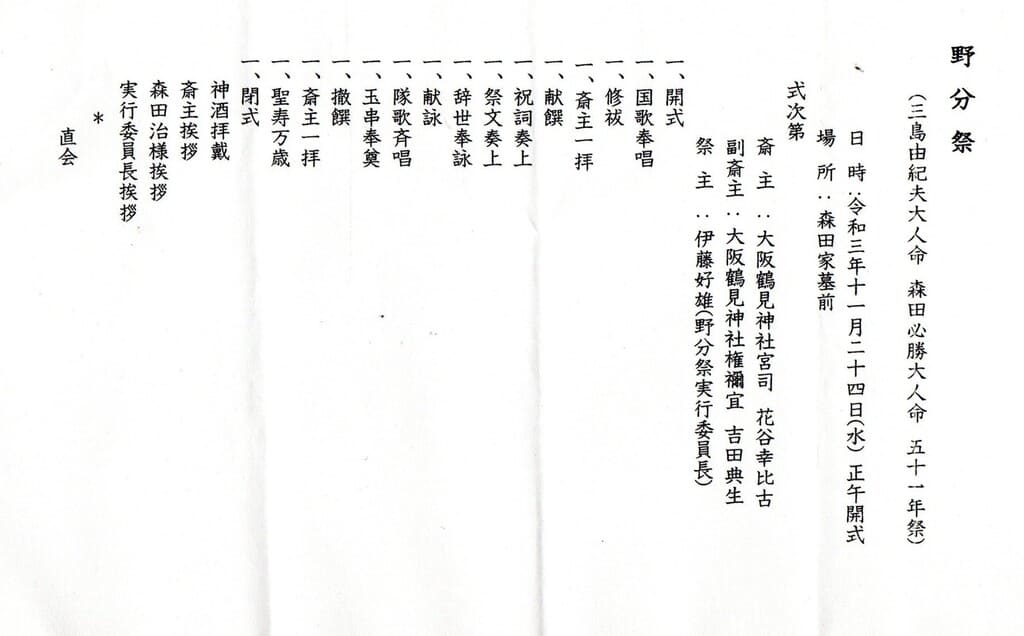 野分祭
(三島由紀夫大人命 森田必勝大人命 五十一年祭)
日 時:令和三年十一月二十四日(水) 正午開式
場 所:森田家墓前
式次第
斎 主 :大阪鶴見神社宮司 花谷幸比古
副斎主:大阪鶴見神社権禰宜 吉田典生
祭 主 :伊藤好雄(野分祭実行委員長)
一、開式
一、国歌奉唱
一、修祓
一、斎主一拝
一、献饌
一、祝詞奏上
一、祭文奏上
一、辞世奉詠
一、献詠
一、隊歌斉唱
一、玉串奉奠
一、撤饌
一、斎主一拝
一、聖寿万歳
一、閉式
神酒拝戴
斎主挨拶
森田治様挨拶
実行委員長挨拶
*
直会